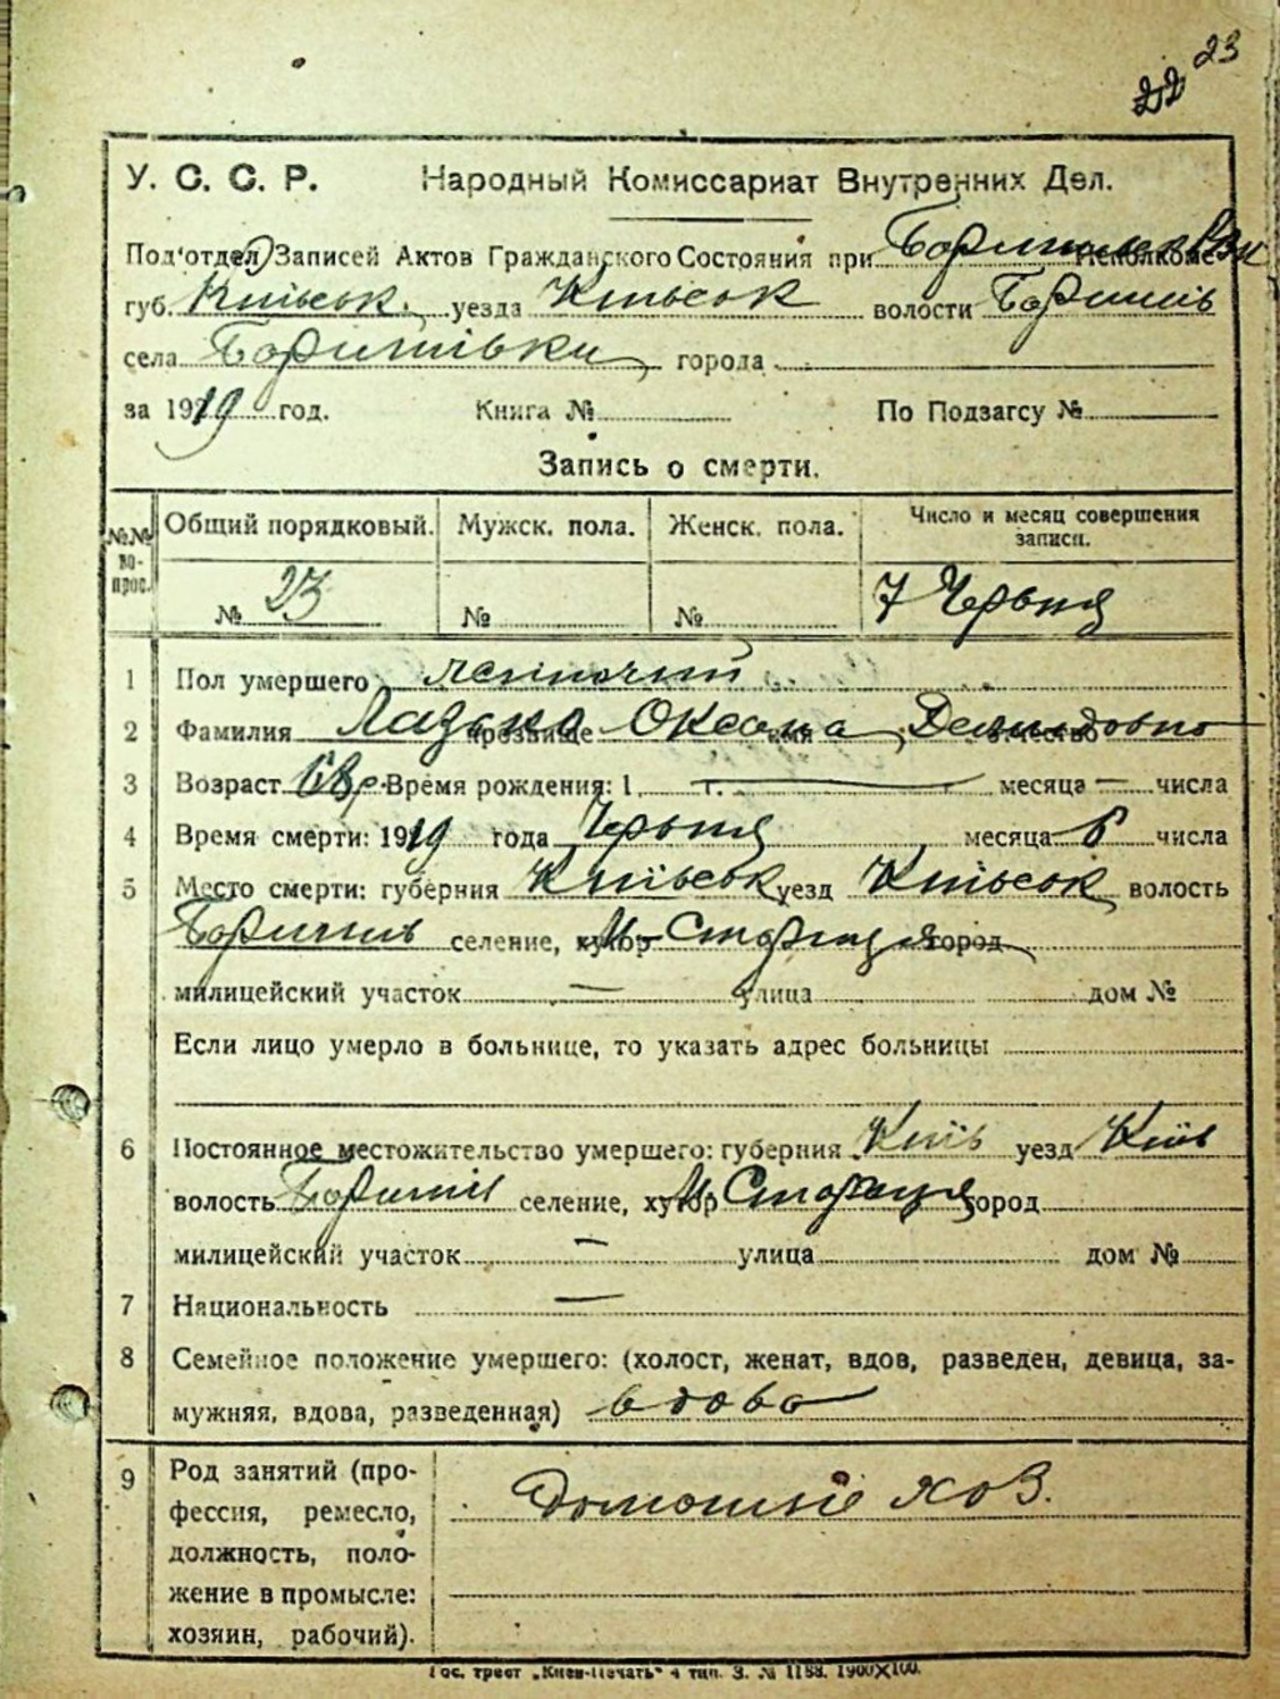 22 23
У. С. С. Р. Народный Комиссариат Внутренних Дел.
Под'отдел Записей Актов Гражданского Состояния при Исполкоме
губ. Київськ. уезда Київськ волости
села города
за 1919 год. Книга № По Подзагсу №
Запись о смерти.
№№ вопрос. Общий порядковый. Мужск. пола. Женск. пола. Число и месяц совершения записи.
№ 23 № № 7 Червня
1 Пол умершего жіночий
2 Фамилия прозвище Оксана имя отчество
3 Возраст 68 р. Время рождения: 1 г. — месяца — числа
4 Время смерти: 1919 года Червня месяца 6 числа
5 Место смерти: губерния Київськ уезд Київськ волость
селение, хутор город
милицейский участок — улица дом №
Если лицо умерло в больнице, то указать адрес больницы
6 Постоянное местожительство умершего: губерния Київ уезд Київ
волость селение, хутор город
милицейский участок — улица дом №
7 Национальность —
8 Семейное положение умершего: (холост, женат, вдов, разведен, девица, за-
мужняя, вдова, разведенная) вдова
9 Род занятий (про-
фессия, ремесло,
должность, поло-
жение в промысле:
хозяин, рабочий).
хоз.
Гос. трест „Киев-Печать" 4 тип. З. № 1188. 1900×100.